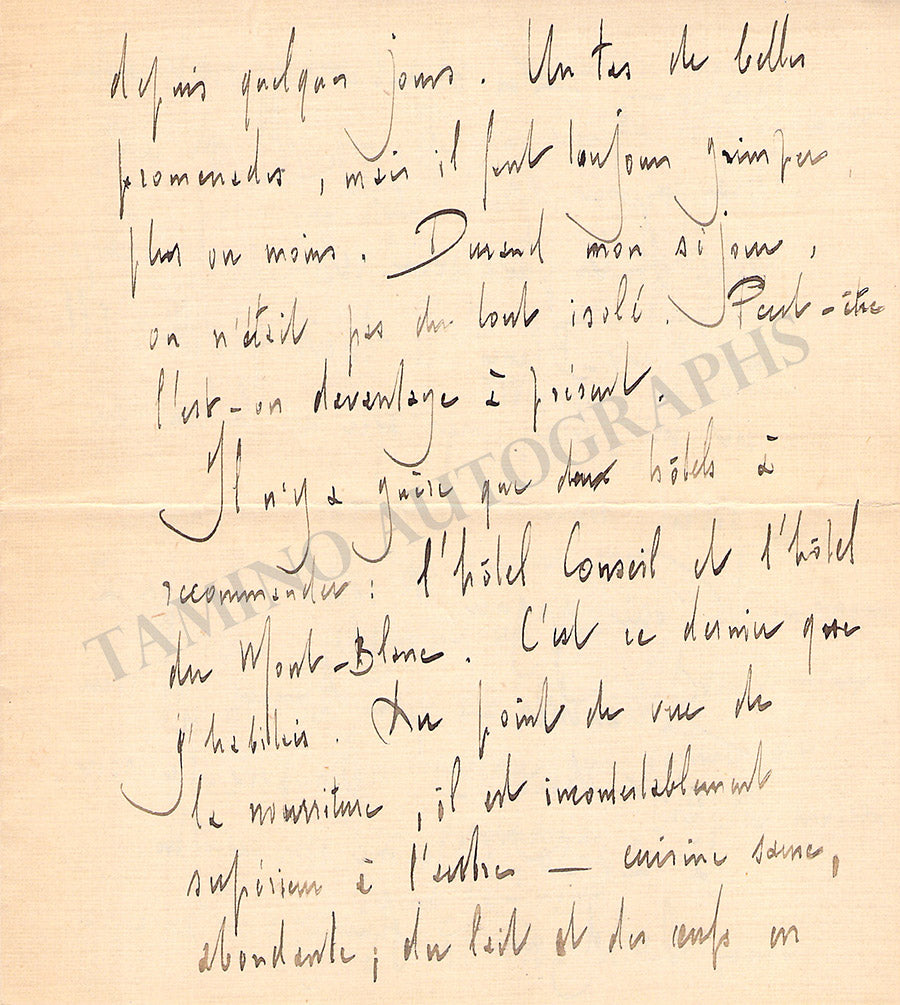 depuis quelques jours. Un tas de belles
promenades, mais il faut toujours grimper
plus ou moins. Durand mon séjour,
on n'était pas du tout isolé. Peut-être
l'est-on davantage à présent.
Il n'y a guère que deux hôtels à
recommander : l'hôtel Conseil et l'hôtel
du Mont-Blanc. C'est ce dernier que
j'habitais. Au point de vue de
la nourriture, il est incontestablement
supérieur à l'autre — cuisine saine,
abondante ; du lait et des œufs en
TAMINO AUTOGRAPHS